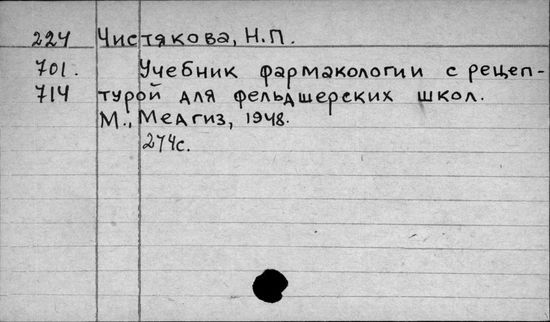 224 Чистякова, Н.П.
701. Учебник фармакологии с рецеп-
714 турой для фельдшерских школ.
М., Медгиз, 1948.
274с.